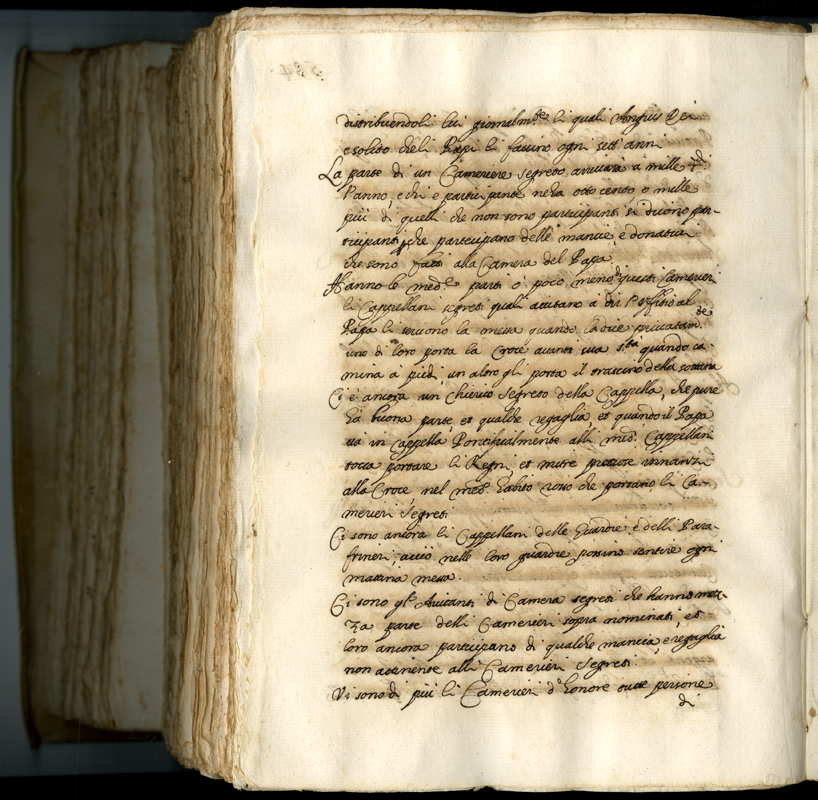 distribuendoli lui giornalm.te li quali Angius Dei
e solito che li Papi li faccino ogni sett' anni
La parte di un Cameriere segreto arrivarà a mille
l'anno, e chi e participante ne ha otto cento o mille
più di quelli che non sono participanti si dicono par-
ticipanti, che partecipano delle mancie, e donativi
che sono fatti alla Camera del Papa.
Hanno le med.e parti ò poco meno di questi Camerieri
li Cappellani segreti quali aiutano a dir l'offitio al
Papa li servono la messa quando la dice privatam.te
uno di loro porta la Croce avanti sua S.tà quando ca-
mina à piedi, un altro gli porta il strascino della sottana
Ci è ancora un chierico segreto della Cappella, che pure
hà buona parte, et qualche regaglia et quando il Papa
va in Cappella Pontificalmente alli med. Cappellani
tocca portare li Regni et mitre pretiose innanzi
alla Croce, nel med. habito rosso che portano li Ca-
merieri segreti
Ci sono ancora li Cappellani delle Guardie è delli Para-
frinieri, acciò nelle loro guardie possino sentire ogni
mattina messa.
Ci sono gl' Aiutanti di Camera segreti che hanno mez-
za parte delli Camerieri sopra nominati, et
loro ancora participano di qualche mancia, e regaglia
non attinente alli Camerieri segreti.
Vi sono di più li Camerieri d'honore tutte persone
di